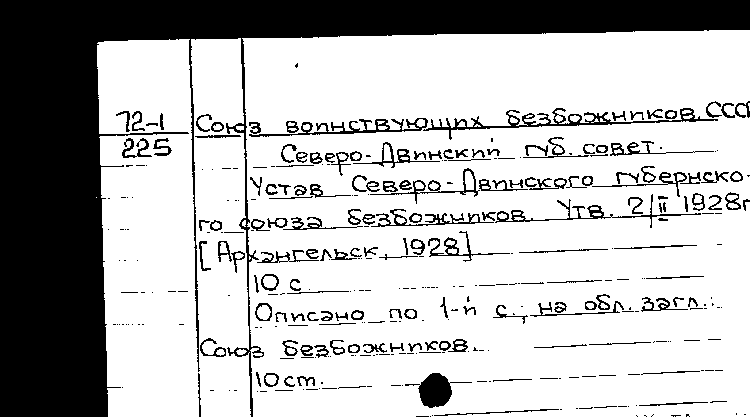 72-1 Союз воинствующих безбожников. СССР
225 Северо-Двинский губ. совет.
Устав Северо-Двинского губернско-
го союза безбожников. Утв. 2/II 1928г
[Архангельск, 1928]
10 с
Описано по 1-й с.; на обл. загл.:
Союз безбожников.
10 ст.